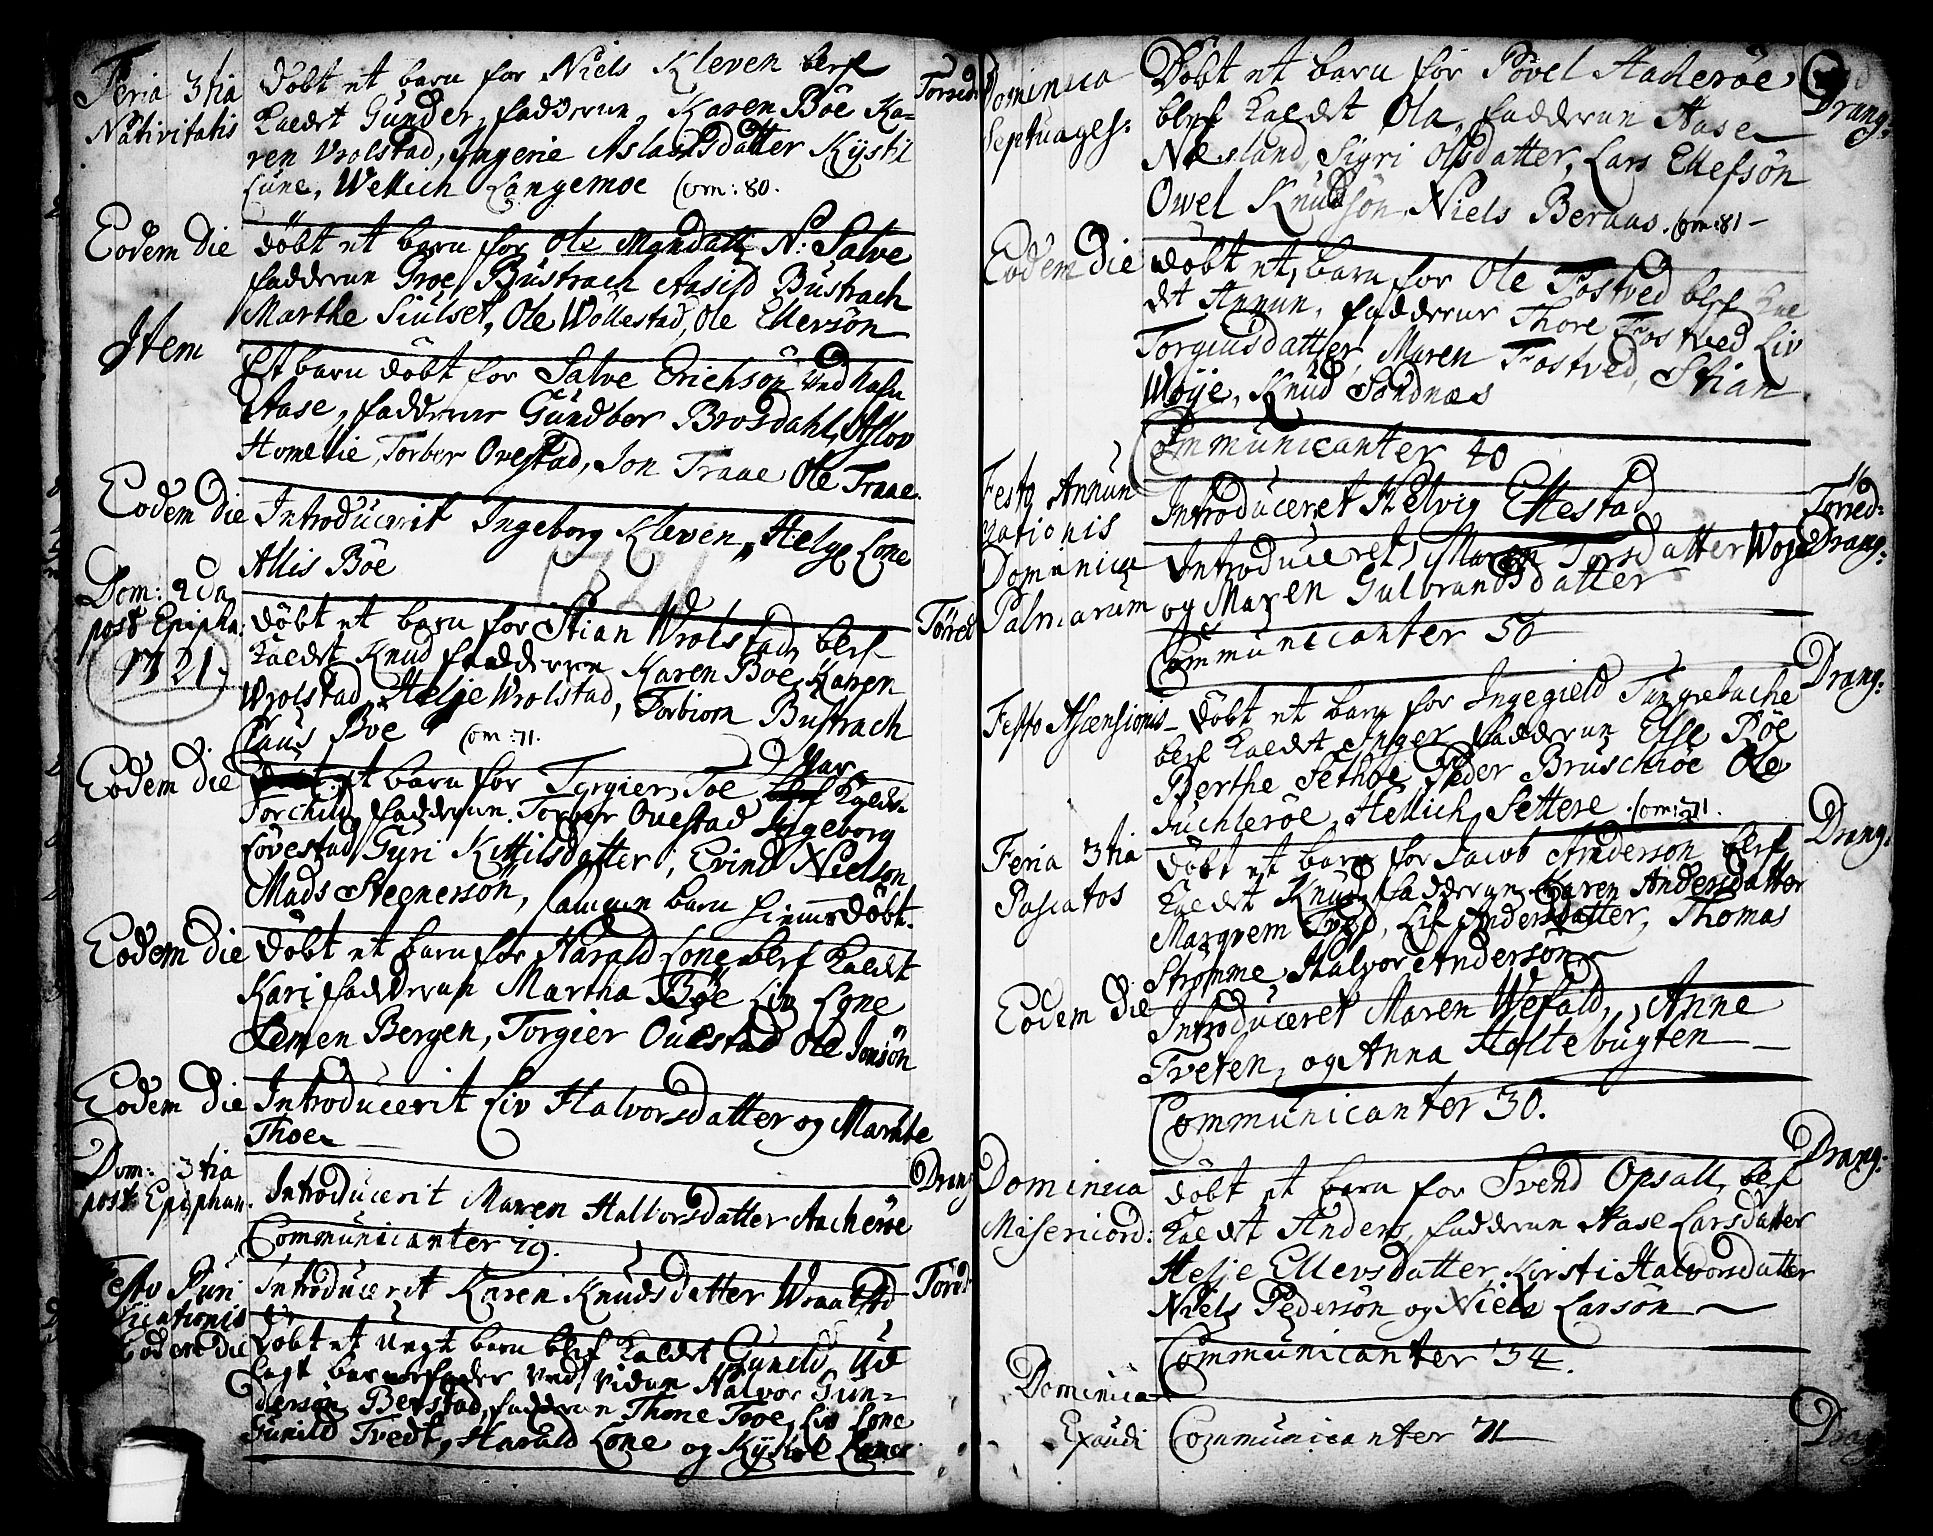 Feria 3tia
Nativitatis
Döbt et barn for Niels Kleven blef
kaldt Gunder, fadderun, Karen Böe Ka-
ren Vrolstad, Ingerie Aslachsdatter Kistil
Lune, Wellich Langemoe Com: 80.
Torred:
Eodem Die
döbt et barn for Ole Mandatz N: Salve
fadderun Groe Bustrach Aasild Bustrach
Marthe Siulset, Ole Wöllestad, Ole Ellersön
Item
Et barn döbt for Salve Erichsön ved Nafn
Aase, fadderun Gundbor Brosdahl, Aslov
Homelie, Torber Ovestad, Jon Traae Ole Traae.
Eodem Die
Introducerit Ingeborg Kleven, Helge Lone
Allis Böe
1721
Dom: 2da
post Epipha:
1721.
döbt et barn for Stian Wrolstad, blef
kaldt Knud fadderen Karen Boe, Karen
Wrolstad, Helje Wrolstad, Torbiorn Bustrach
Claus Boe Com: 71.
Torred
Eodem Die
Et barn for Torgier Toe Kaldt
Torchild, fadderun. Torber Ovestad Ingeborg
Lövestad Guri Kittilsdatter, Evind Nielson
Mads Steenersön, samme barn hiemmedöbt.
Eodem Die
Döbt et barn for Harald Lone blef kaldt
Kari fadderun Martha Böe Liv Lone
Semen Bergen, Torgier Ovestad Ole Jonsön
Eodem Die
Introducerit Liv Halvorsdatter og Marthe
Thoe
Dom: 3tia
post Epiphan.
Introducerit Maren Halvorsdatter Aacheröe
Communicanter 19.
Drang
Festo Puri
ficationis
Introducerit Karen Knudsdatter Wraalstd
Tored:
Eodem Die
Döbt et Uegt barn blef kaldt Gunild, Ud
lagt barnefader ved, Vidum Halvor Gun-
dersön Berstad, fadderun Thone Troe, Liv Lone
Gunild Tvedt, Harald Lone og Kistil Lone
Dominica
Septuages:
Döbt et barn for Povel Aacheröe
blef kaldt Ola, fadderun Aase
Næsland, Sigri Olsdatter, Lars Ellefsön
Owel Knudsön Niels Beraas. Com: 81 -
Drang:
Eodem Die
döbt et, barn for Ole Fostved blef kae
dt Annun, fadderun Thore Fostved Liv
Torgiusdatter, Maren Fostved, Stian
Woije, Knud Sandnæs
Communicanter 40
Festo Annun
tationis
Introduceret Helvig Ettestad
Torred:
Dominica
Palmarum
Introduceret, Maren Torsdatter Woje
og Maren Gulbrandsdatter
Communicanter 56
Drang:
Festo Ascensionis
Döbt et barn for Ingegield Tungebache
blef kaldt Inger fadderun Else Böe
Berthe Sethoe Peder Bruschröe Ole
Juchleröe, Hellich Settere. Com: 71.
Drang:
Feria 3tia
Pascatos
Döbt et barn for Jacob Anderson blef
kaldt Knud, fadderun Karen Andersdatter
Margrem Tved, Lif Andersdatter, Thomas
Strømme Halvor Anderson
Drang.
Eodem Die
Introduceret Maren Wefald, Anne
Tveten, og Anna Holtebugten
Communicanter 30.
Dominica
Misericord:
döbt et barn for Svend Opsall, blef
kaldt Anders, fadderun Aase Larsdatter
Helje Ellevsdatter, Kirsti Halvorsdatter
Niels Pedersön og Niels Larsön
Communicanter 34.
Drang:
Dominica
Exaudi
Communicanter 71
Drang